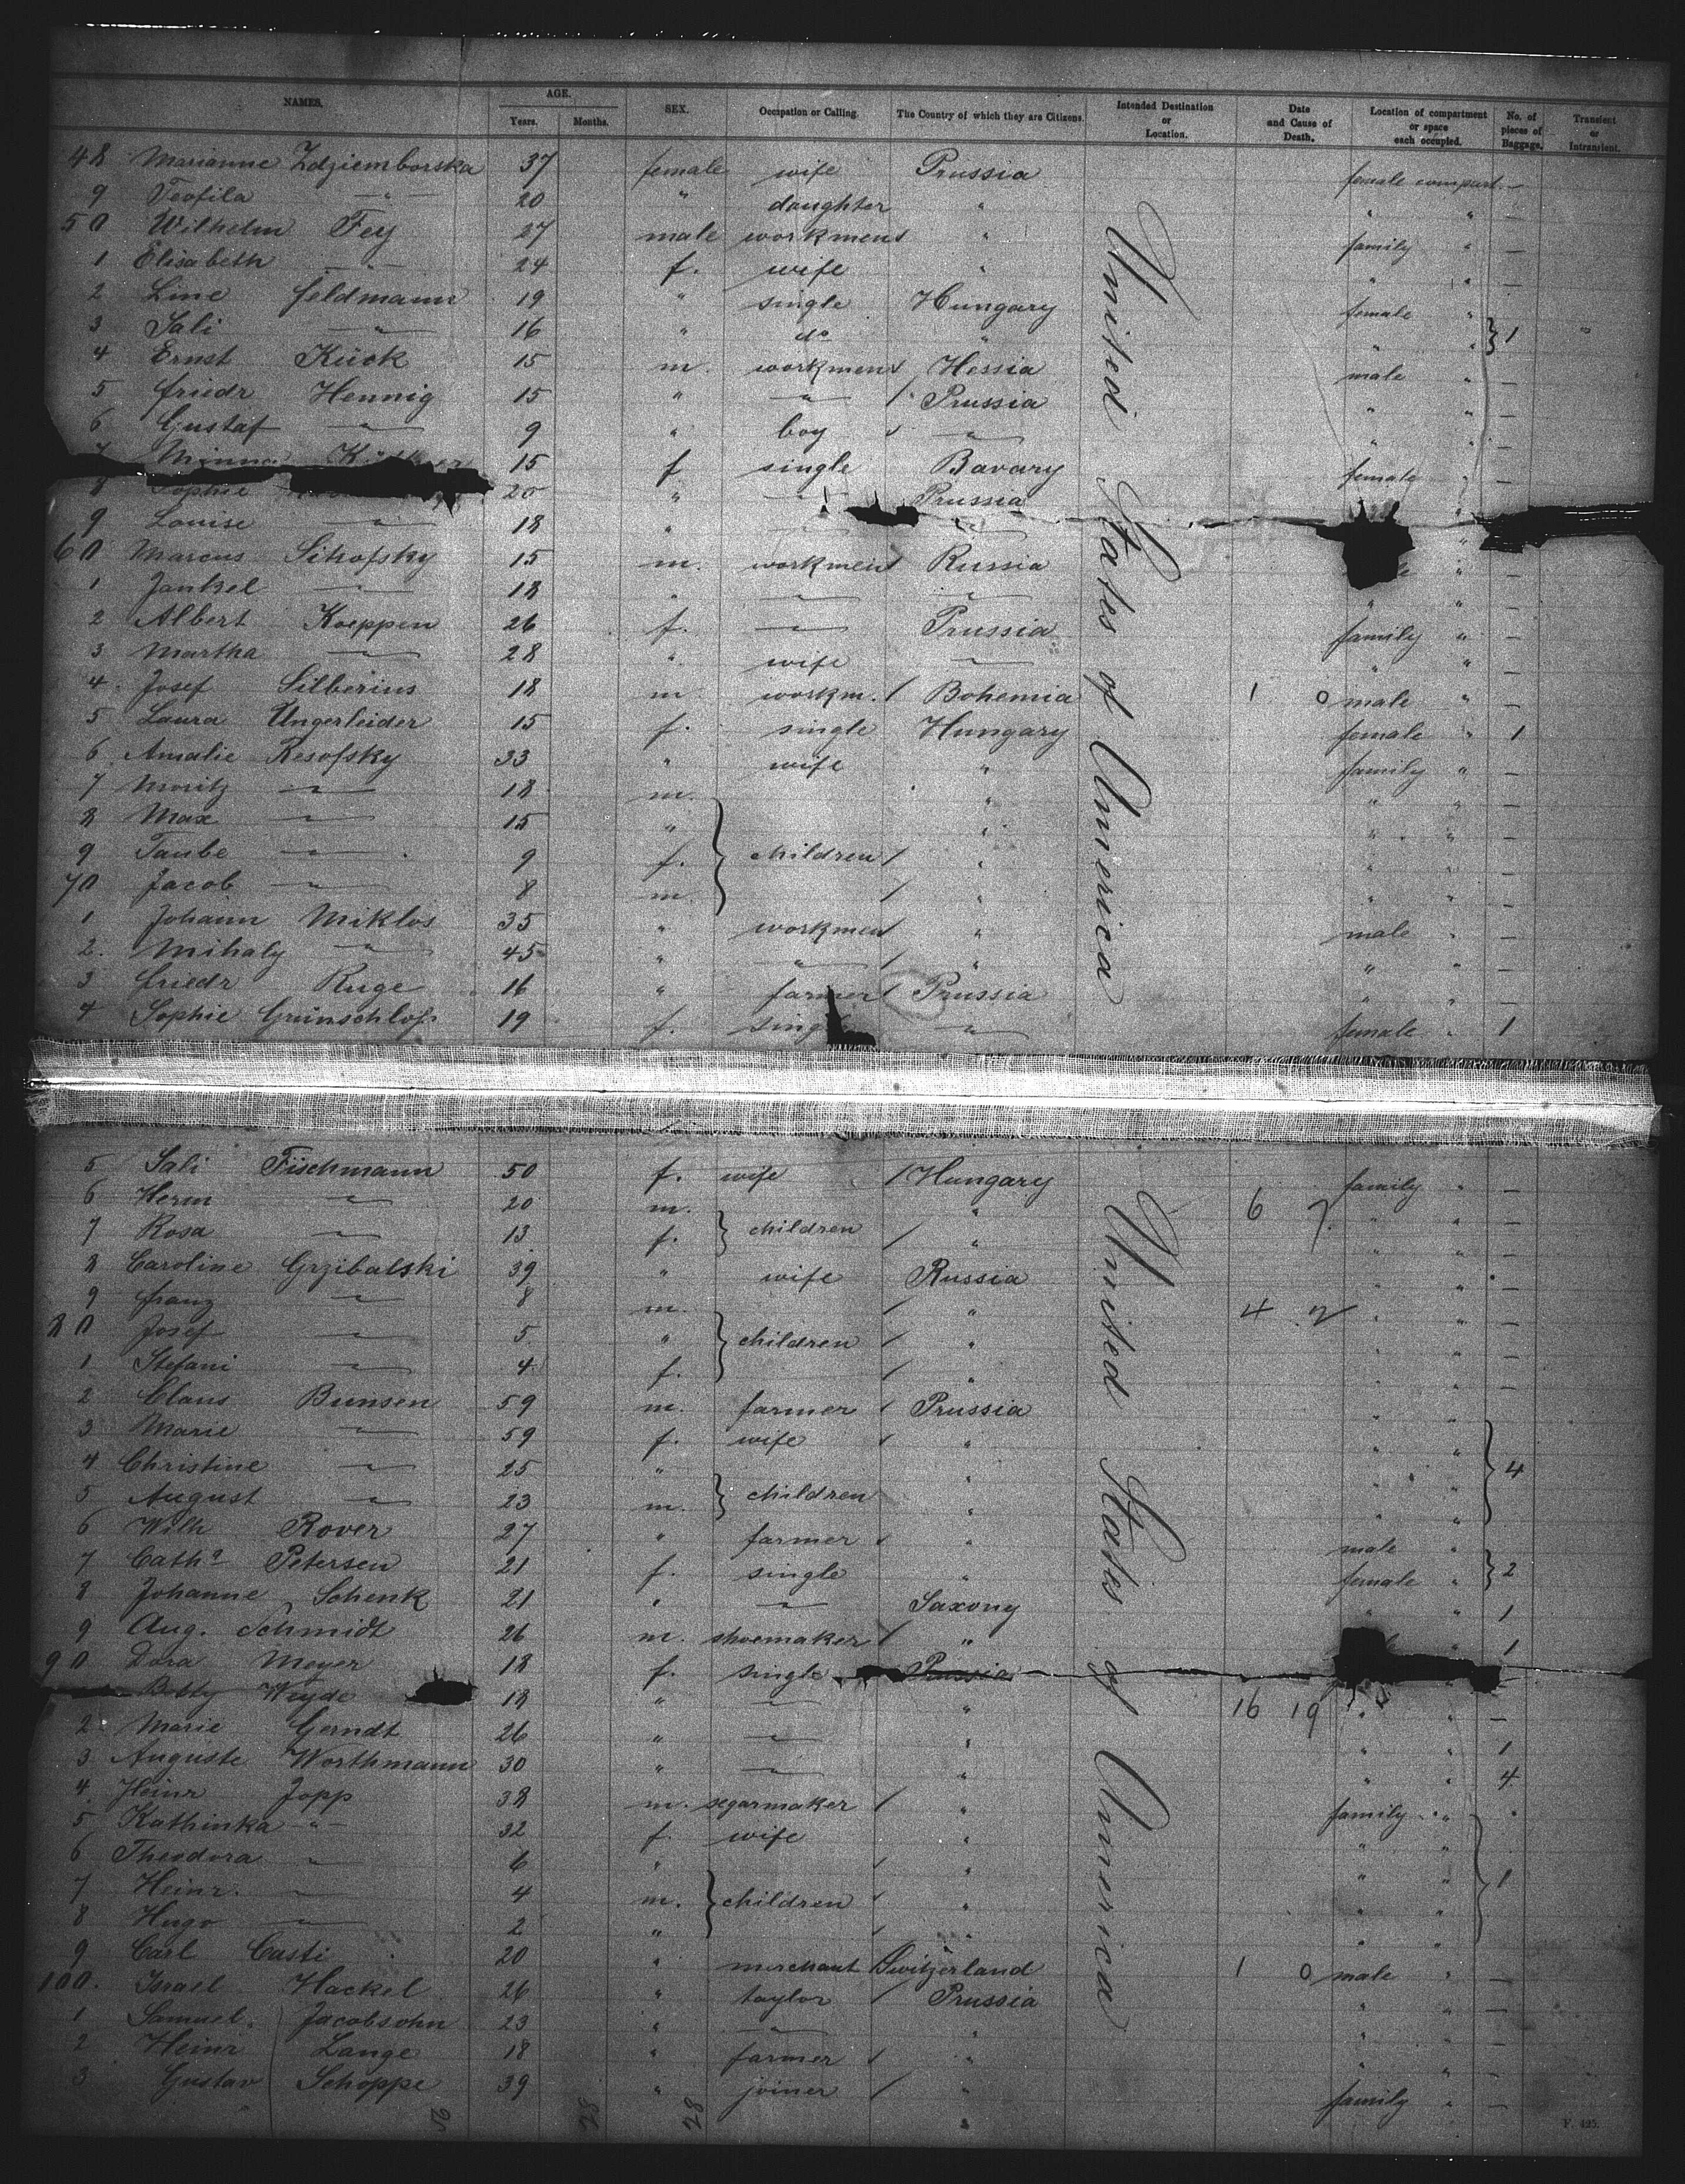 NAMES. AGE. Years. Months. SEX. Occupation or Calling. The Country of which they are Citizens. Intended Destination or Location. Date and Cause of Death. Location of compartment or space each occupied. No. of pieces of Baggage. Transient or Intransient.
48 Marianne Zdziemborska 37 female wife Prussia female compart. —
9 Teofila —"— 20 " daughter " " " —
50 Wilhelm Fey 27 male workmen " family " —
1 Elisabeth —"— 24 f. wife " " " —
2 Line Feldmann 19 " single Hungary female "
3 Sali —"— 16 " do " " " } 1
4 Ernst Kück 15 m. workmen Hessia male " —
5 Friedr Hennig 15 " —"— / Prussia " " —
6 Gustaf —"— 9 " boy —"— " —
7 Minna 15 f single Bavary female " —
8 Sophie 20 " —"— Prussia "
9 Louise —"— 18 " "
60 Marcus Sihofsky 15 m. workmen Russia " —
1 Jankel —"— 18 " —"— —"— " " —
2 Albert Koeppen 26 f. —"— Prussia family " —
3 Martha —"— 28 " wife —"— " " —
4 Josef Silberius 18 m workm. / Bohemia 1 0 male " —
5 Laura Ungerleider 15 f. single Hungary female " 1
6 Amalie Resofsky 33 " wife " family " —
7 Moritz —"— 18 m. " " " —
8 Max —"— 15 " " " " —
9 Taube —"— 9 f. } children / " " " —
70 Jacob —"— 8 m. / " " " —
1 Johann Miklos 35 " workmen " male " —
2. Mihaly —"— 45 " —"— / " " " —
3 Friedr Ruge 16 " farmer Prussia " " —
4 Sophie Grünschloß 19 f. single —"— female " 1
United States of America
5 Sali Fischmann 50 f. wife / Hungary family " —
6 Herm —"— 20 m. " 6 7. " " —
7 Rosa —"— 13 f. } children / " " " —
8 Caroline Grzibalski 39 " wife Russia " " —
9 Franz —"— 8 m. / " 4 2 " " —
80 Josef —"— 5 " } children / " " " —
1 Stefani —"— 4 f. / " " " —
2 Claus Bunsen 59 m. farmer / Prussia " "
3 Marie —"— 59 f. wife " " "
4 Christine —"— 25 " " " " } 4
5 August —"— 23 m. } children " " "
6 Wilh Rover 27 " farmer " male "
7 Catha Petersen 21 f. single " female " } 2
8 Johanne Schenk 21 " —"— Saxony " " 1
9 Aug. Schmidt 26 m. shoemaker / " " 1
90 Dora Meyer 18 f. single Prussia "
Betty Weyde 18 " —"— " 16 19 " " —
2 Marie Gerndt 26 " —"— " " " 1
3 Auguste Worthmann 30 " —"— " " " 4
4 Heinr Jopp 38 m. segarmaker / " family "
5 Kathinka —"— 32 f. wife " " "
6 Theodora —"— 6 " / " " "
7 Heinr. —"— 4 m. } children " " " } 1
8 Hugo —"— 2 " / " " "
9 Carl Casti 20 " merchant Switzerland 1 0 male " —
100. Israel Hackel 26 " taylor / Prussia " " —
1 Samuel Jacobsohn 23 " —"— " " " —
2 Heinr Lange 18 " farmer " " " —
3 Gustav Schoppe 39 " joiner / " family " —
United States of America
56 28 28
F. 425.